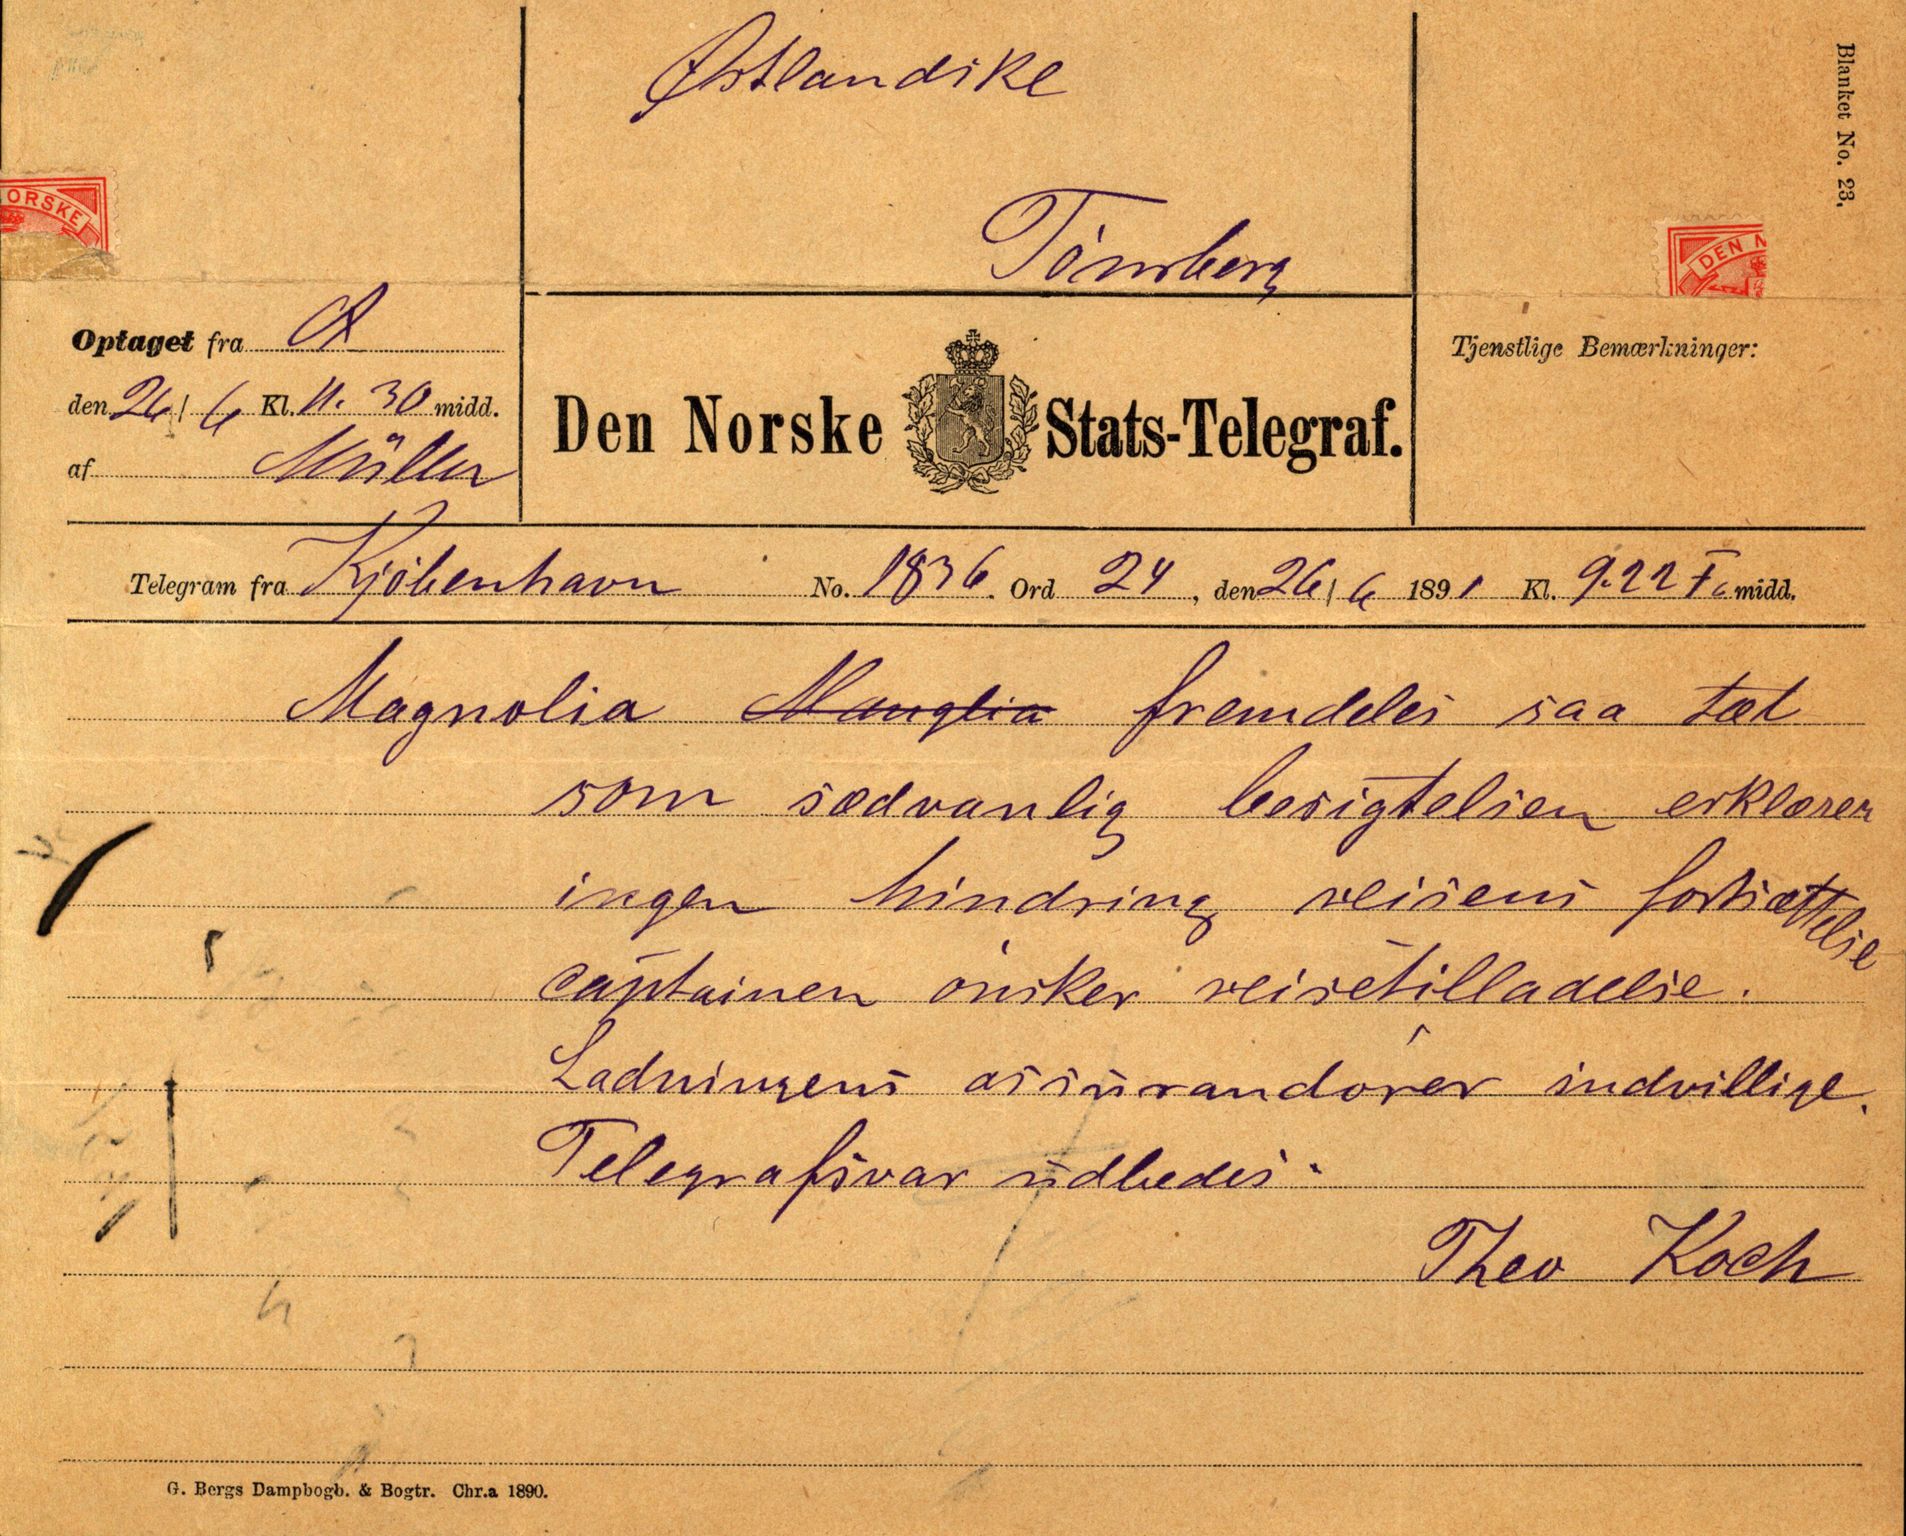 Østlandske
Tönsberg
Blanket No. 23.
ORSKE
DEN N
Optaget fra
den 26/6 Kl. 11.30 midd.
af Müller
Den Norske Stats-Telegraf.
Tjenstlige Bemærkninger:
Telegram fra Kjöbenhavn No. 1836. Ord 24, den 26/6 1891 Kl. 9.22 F. midd.
Magnolia Manglia fremdeles saa tæt
som sædvanlig besigtelsen erklærer
ingen hindring reisens fortsættelse
captainen önsker reisetilladelse.
Ladningens assurandörer indvillige.
Telegrafsvar udbedes.
Theo Koch
G. Bergs Dampbogb. & Bogtr. Chr.a 1890.